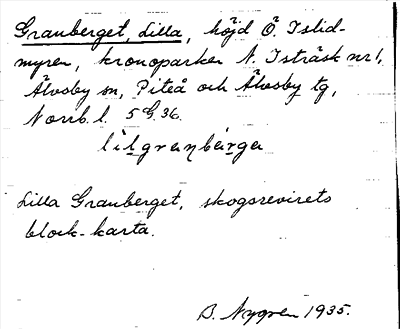 Granberget, Lilla, höjd Ö. Islid-
myren, kronoparken N. Isträsk nr 1,
Älvsby sn, Piteå och Älvsby tg,
Norrb. l. 5 G. 36.
lilgranbärga
Lilla Granberget, skogsrevirets
block-karta.
B. Nygren 1935.